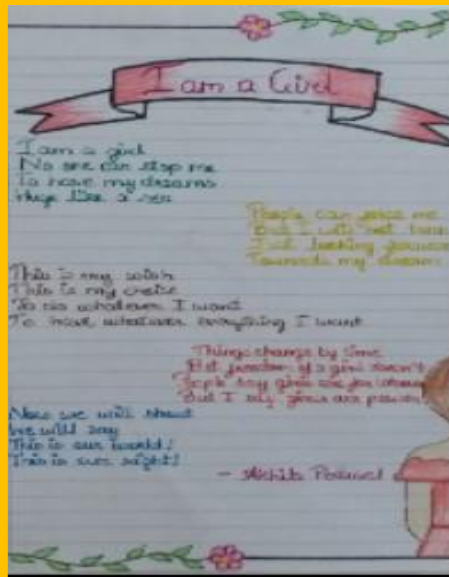 I am a Girl
I am a girl
No one can stop me
To have my dreams
Huge like a sea
People can me
But I will not
Just looking forward
Towards my dream
This is my wish
This is my choice
To do whatever I want
To have whatever everything I want
Things change by time
But freedom of a girl doesn't
People say girls are for
But I say girls are power
Now we will shout
We will say
This is our world!
This is our right!
-